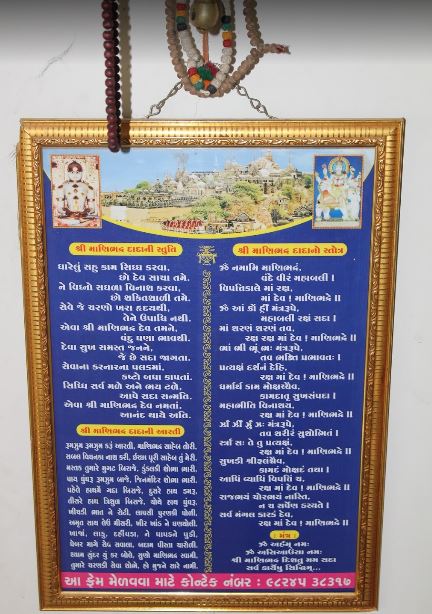 શ્રી માણિભદ્ર દાદાની સ્તુતિ
ધારેલું સહુ કામ સિધ્ધ કરવા.
છો દેવ સાચા તમે.
ને વિઘ્નો સઘળા વિનાશ કરવા.
છો શક્તિશાળી તમે.
સેવે જે ચરણો ખરા હૃદયથી.
તેને ઉપાધિ નથી.
એવા શ્રી માણિભદ્ર દેવ તમને.
વંદુ ઘણા ભાવથી.
દેવા સુખ સમસ્ત જનને.
જે છે સદા જાગતા.
સેવાના કરનારના પલકમાં.
કષ્ટો બધા કાપતાં
સિધ્ધિ સર્વ મળે અને ભય ટળે.
આપે સદા સન્મતિ.
એવા શ્રી માણિભદ્ર દેવ નમતાં.
આનંદ થાયે અતિ.
શ્રી માણિભદ્ર દાદાની આરતી
રૂમઝુમ રૂમઝુમ કરું આરતી. માણિભદ્ર સાહેબ તોરી.
સબલ વિઘનકા નાથ કરી. ઈચ્છા પુરી સાહેબ તું મેરી.
મસ્તક તુમારે મુગટ બિરાજે. કુંડલકી શોભા ભારી.
પાય ઘુંઘરૂ રૂમઝુમ બાજે. જિનમંદિર શોભા ભારી.
પહેલે હાથમેં ગદા બિરાજે. દુસરે હાથ ડમરૂ
તીસરે હાથ ત્રિશુલ બિરાજે. ચોથે હાથ ઘુંઘરૂ
ખીચડી ભાત ને રોટી. લાવશી પુરણકી પોળી.
અમૃત સાથ ઘેઈ મીસરી. ખીર ખાંડ ને ઘણઘોલી.
ખાજાં, લાડુ, દહીંવડા. ને પાપડને પુડી.
ઘેબર માગે સેવ સવાલા. બદામ પીસ્તા ચારોલી.
શ્યામ સુંદર યું કર બોલે, સુણો માણિભદ્ર સ્વામી.
તુમારે ચરણકી સેવા શોબે. હો મુજને વારે નામી.
શ્રી માણિભદ્ર દાદાનો સ્તોત્ર
ૐ નમામિ માણિભદ્રં.
વંદે વીરં મહાબલી ।
વિપત્તિકાલે માં રક્ષ.
માં દેવ ! માણિભદ્રે ॥
ૐ આં ક્રોં હીં મંત્રરૂપે.
મહાબલી રક્ષં સદા ।
માં શરણં શરણં તવ.
રક્ષ રક્ષ માં દેવ ! માણિભદ્રે ॥
ભાં ભીં ભૂં ભઃ મંત્રરૂપે.
તવ ભક્તિ પ્રભાવતઃ ।
પ્રત્યક્ષં દર્શનં દેહિ.
રક્ષ માં દેવ ! માણિભદ્રે ॥
ધર્માર્થ કામ મોક્ષશ્ચૈવ.
કામદાતૃ સુખસંપદા ।
મહાભીતિ વિનાશાય.
રક્ષ માં દેવ ! માણિભદ્રે ॥
ઝાઁ ઝીઁ ઝુઁ ઝઃ મંત્રરૂપે.
તવ શરીરં સુશોભિતં ।
સ્ત્રાઁ સઃ તે તુ પ્રત્યક્ષં.
રક્ષ માં દેવ ! માણિભદ્રે ॥
સુખડી શ્રીફલંશ્ચૈવ.
કામદં મોક્ષદં તથા ।
આધિં વ્યાધિં વિપત્તિં ચ.
રક્ષ માં દેવ ! માણિભદ્રે ॥
રાજભયં ચોરભયં નાસ્તિ.
ન ચ સર્પેણ ડસ્યતે ।
સર્વ મંગલ કારકં દેવ.
રક્ષ માં દેવ ! માણિભદ્રે ॥
મંત્ર :
ૐ અર્હમ્ નમઃ
ૐ અસિઆઉસા નમઃ
શ્રી માણિભદ્ર દિશતુ મમ સદા
સર્વ કાર્યેષુ સિધ્ધિમ્...
આ ફ્રેમ મેળવવા માટે કોન્ટેક નંબર : ૯૮૨૪૫ ૩૮૩૧૭